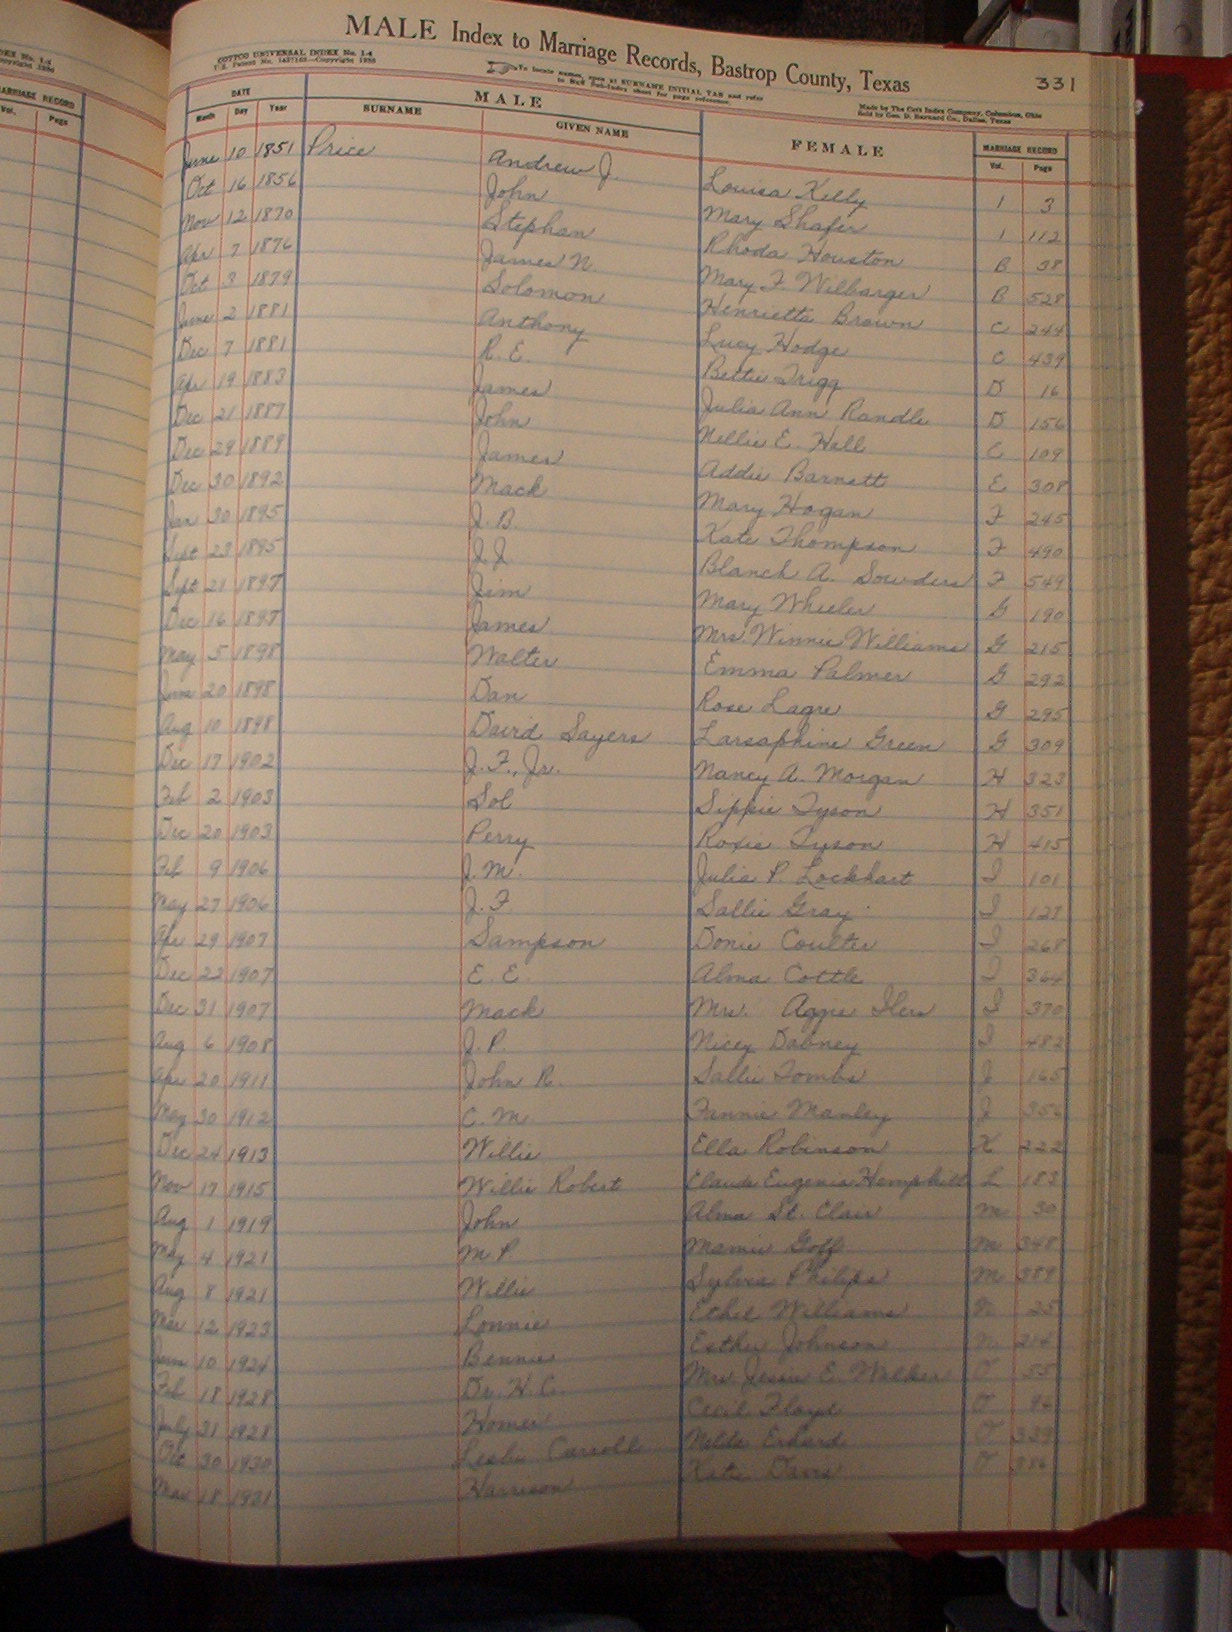 EX No. 1-4
opyright 1936
ARRIAGE RECORD
Vol. Page
COTTCO UNIVERSAL INDEX No. 1-4
MALE Index to Marriage Records, Bastrop County, Texas 331
To locate names, open at SURNAME INITIAL TAB and refer
to Sub-Index sheet for page reference.
Made by The Cott Index Company, Columbus, Ohio
Sold by Geo. D. Barnard Co., Dallas, Texas
DATE MALE FEMALE MARRIAGE RECORD
Month Day Year SURNAME GIVEN NAME Vol. Page
June 10 1851 Price Andrew J. Louisa Kelly 1 3
Oct 16 1856 John Mary Shafer 1 112
Nov 12 1870 Stephan Rhoda Houston B 38
Apr 7 1876 James N. Mary F Wilbarger B 528
Oct 3 1879 Solomon Henrietta Brown C 244
June 2 1881 Anthony Lucy Hodge C 439
Dec 7 1881 R. E. Bettie Trigg D 16
Apr 19 1883 James Julia Ann Randle D 156
Dec 21 1887 John Nellie E. Hall C 109
Dec 29 1889 James Addie Barnett E 308
Dec 30 1892 Mack Mary Hogan F 245
Jan 30 1895 J. B. Kate Thompson F 490
Sept 23 1895 J. J. Blanch A. Sowders F 549
Sept 21 1897 Jim Mary Wheeler G 190
Dec 16 1897 James Mrs. Winnie Williams G 215
May 5 1898 Walter Emma Palmer G 292
June 20 1898 Dan Rose Lagre G 295
Aug 10 1898 David Sayers Larsaphine Green G 309
Dec 17 1902 J. F., Jr. Nancy A. Morgan H 323
Feb 2 1903 Sol Sippie Tyson H 351
Dec 20 1903 Perry Rosie Tyson H 415
Feb 9 1906 J. M. Julia P. Lockhart I 101
May 27 1906 J. F. Sallie Gray I 127
Apr 29 1907 Sampson Donie Coulter I 268
Dec 22 1907 E. E. Alma Cottle I 364
Dec 31 1907 Mack Mrs. Aggie Iles I 370
Aug 6 1908 J. P. Nicey Dabney I 482
Apr 20 1911 John R. Sallie Tombs J 165
May 30 1912 C. M. Fannie Manley J 356
Dec 24 1913 Willie Ella Robinson K 222
Nov 17 1915 Willie Robert Claude Eugenia Hemphill L 183
Aug 1 1919 John Alma St. Clair M 30
May 4 1921 M. P. Mamie Golf M 348
Aug 8 1921 Willie Sylvia Philips M 389
Mar 12 1923 Lonnie Ethel Williams N 25
June 10 1924 Bennie Esther Johnson N 214
Feb 18 1928 Dr. H. C. Mrs. Jessie E. Walker O 55
July 31 1928 Homer Cecil Floyd O
Oct 30 1930 Leslie Carroll Erhard O 329
Mar 18 1931 Harrison Katie Davis O 386